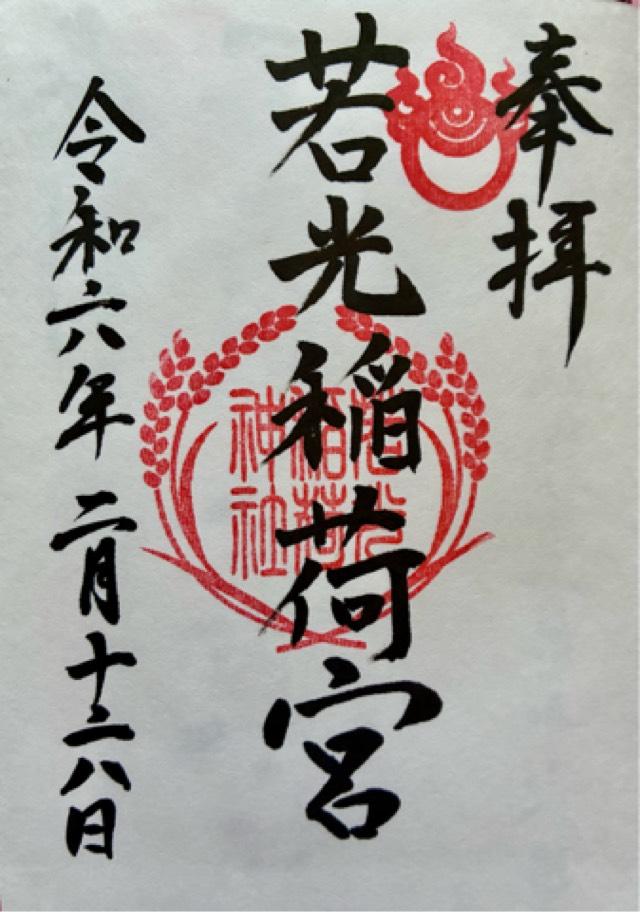 奉拝
若光稲荷宮
若光
稲荷
神社
令和六年二月十六日